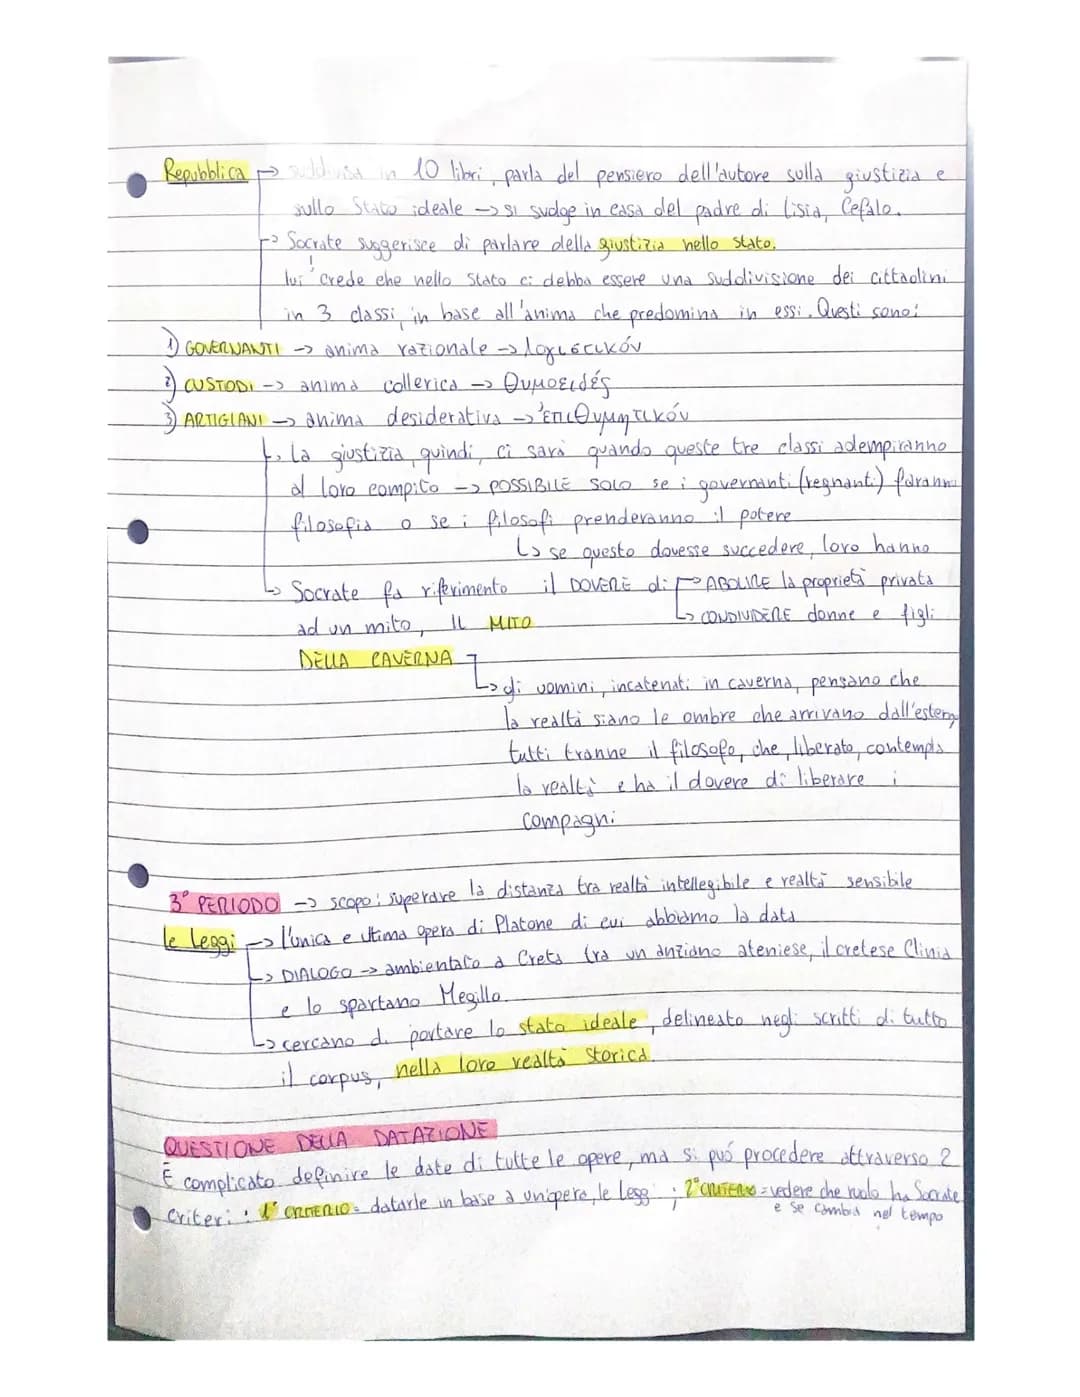 Repubblica → suddivisa in 10 libri, parla del pensiero dell'autore sulla giustizia e
sullo Stato ideale → si svolge in casa del padre di Lisia, Cefalo.
→ Socrate suggerisce di parlare della giustizia nello Stato.
lui crede che nello Stato ci debba essere una suddivisione dei cittadini
in 3 classi, in base all'anima che predomina in essi. Questi sono:
1) GOVERNANTI → anima razionale → λογιστικόν
2) CUSTODI → anima collerica → θυμοειδές
3) ARTIGIANI → anima desiderativa → ἐπιθυμητικόν
↳ La giustizia, quindi, ci sarà quando queste tre classi adempiranno
al loro compito → POSSIBILE SOLO se i governanti (regnanti) faranno
filosofia o se i filosofi prenderanno il potere
↳ se questo dovesse succedere, loro hanno
il DOVERE di: → ABOLIRE la proprietà privata
↳ CONDIVIDERE donne e figli
↳ Socrate fa riferimento
ad un mito, IL MITO
DELLA CAVERNA
↳ gli uomini, incatenati in caverna, pensano che
la realtà siano le ombre che arrivano dall'esterno
tutti tranne il filosofo, che, liberato, contempla
la realtà e ha il dovere di liberare i
compagni
3° PERIODO → scopo: superare la distanza tra realtà intellegibile e realtà sensibile
le Leggi → l'unica e ultima opera di Platone di cui abbiamo la data
↳ DIALOGO → ambientato a Creta tra un anziano ateniese, il cretese Clinia
e lo spartano Megillo.
↳ cercano di portare lo stato ideale, delineato negli scritti di tutto
il corpus, nella loro realtà storica.
QUESTIONE DELLA DATAZIONE
È complicato definire le date di tutte le opere, ma si può procedere attraverso 2
criteri: 1° CRITERIO = datarle in base a un'opera, le leggi; 2° CRITERIO = vedere che ruolo ha Socrate
e se cambia nel tempo